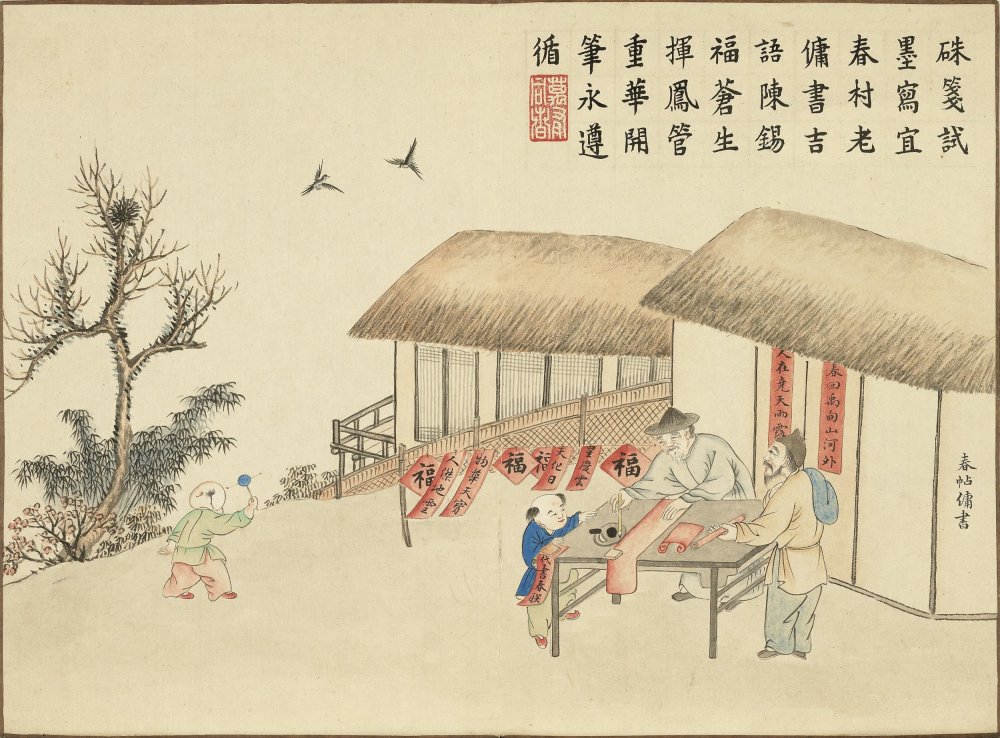 硃箋試
墨寫宜
春村老
傭書吉
語陳錫
福蒼生
揮鳳管
重華開
筆永遵
循
春帖傭書
春回禹甸山河外
人在堯天雨露
福
重慶雲
天化日
福
福
物華天寶
人傑地靈
福
代書春聯